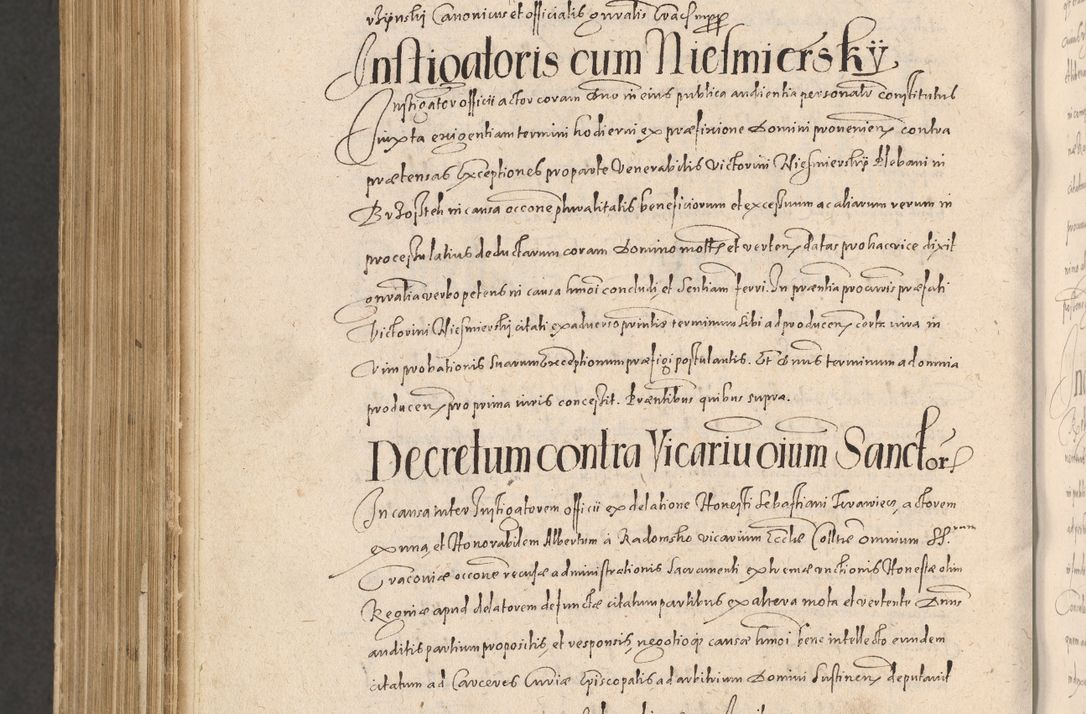 Canonicus et officialis gnralis Crac mpp
Instigatoris cum Niesmierskÿ
Instigator officii actor coram Dno in eius publica audientia personalr constitutus
iuxta exigentiam termini hodierni ex præfixione Domini provenien contra
prætensas Exceptiones pro parte Venerabilis Victorini Niesmierskÿ Plebani in
Brzosteh in causa occone pluralitatis beneficiorum et excessuum ac aliarum rerum in
processu latius deductarum coram Domino mott et verten datas pro hac vice dixit
gnralia verbo petens in causa hmoi concludi et Sentiam ferri. In præntia procuris præfati
Victorini Niesmierskÿ citati ex adverso prinlis terminum sibi ad producen certa iura in
vim probationis suarum Exceptionum præfigi postulantis. Et Dnus terminum ad omnia
producen pro prima iuris concessit. Præntibus quibus supra.
Decretum contra Vicariu oium Sanctor
In causa inter Instigatorem officii ex delatione Honesti Sebastiani Trawiecz, actorem
ex una, et Honorabilem Albertum à Radomsko vicarium Eccliæ Colltæ Omnium SS.rum
Cracoviæ occone recusæ administrationis Sacramenti extremæ unctionis Honestæ olim
Reginæ apud delatorem defunctæ citatum partibus ex altera mota et vertente Dnus
auditis partium propositis, et responsis, negotioq causæ hmoi bene intellecto eundem
citatum ad Carceres Curiæ Episcopalis ad arbitrium Domini Sustinen deputavit